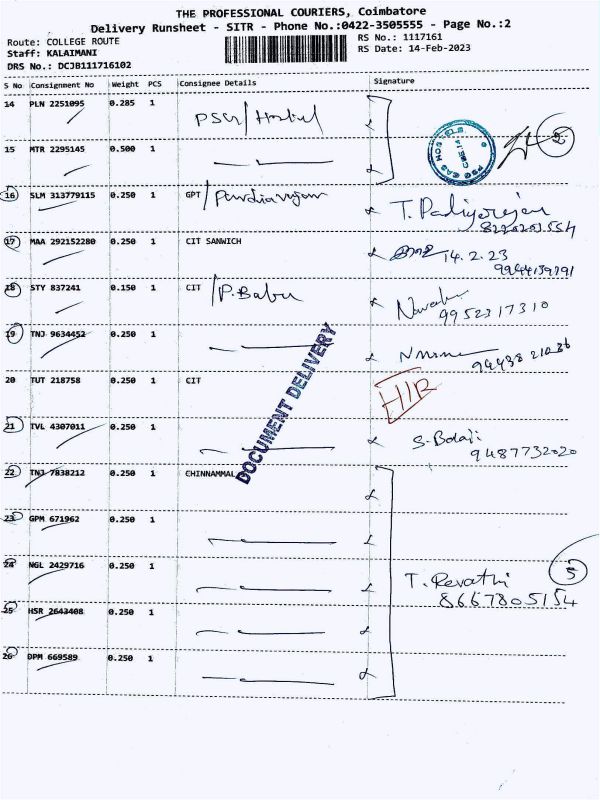 THE PROFESSIONAL COURIERS, Coimbatore
Delivery Runsheet - SITR - Phone No.:0422-3505555 - Page No.:2
Route: COLLEGE ROUTE RS No.: 1117161
Staff: KALAIMANI RS Date: 14-Feb-2023
DRS No.: DCJB111716102
S No Consignment No Weight PCS Consignee Details Signature
14 PLN 2251095 0.285 1
15 MTR 2295145 0.500 1 2
16 SLM 313779115 0.250 1 GPT
17 MAA 292152280 0.250 1 CIT SANWICH 14.2.23
18 STY 837241 0.150 1 CIT / P. Babu
9952317310
19 TNJ 9634452 0.250 1
20 TUT 218758 0.250 1 CIT
DOCUMENT DELIVERY
21 TVL 4307011 0.250 1 S. Balaji
9487732020
22 TNJ 7838212 0.250 1 CHINNAMMAL
23 GPM 671962 0.250 1
24 NGL 2429716 0.250 1 T. Revathi 5
8667805154
25 HSR 2643408 0.250 1
26 DPM 669589 0.250 1